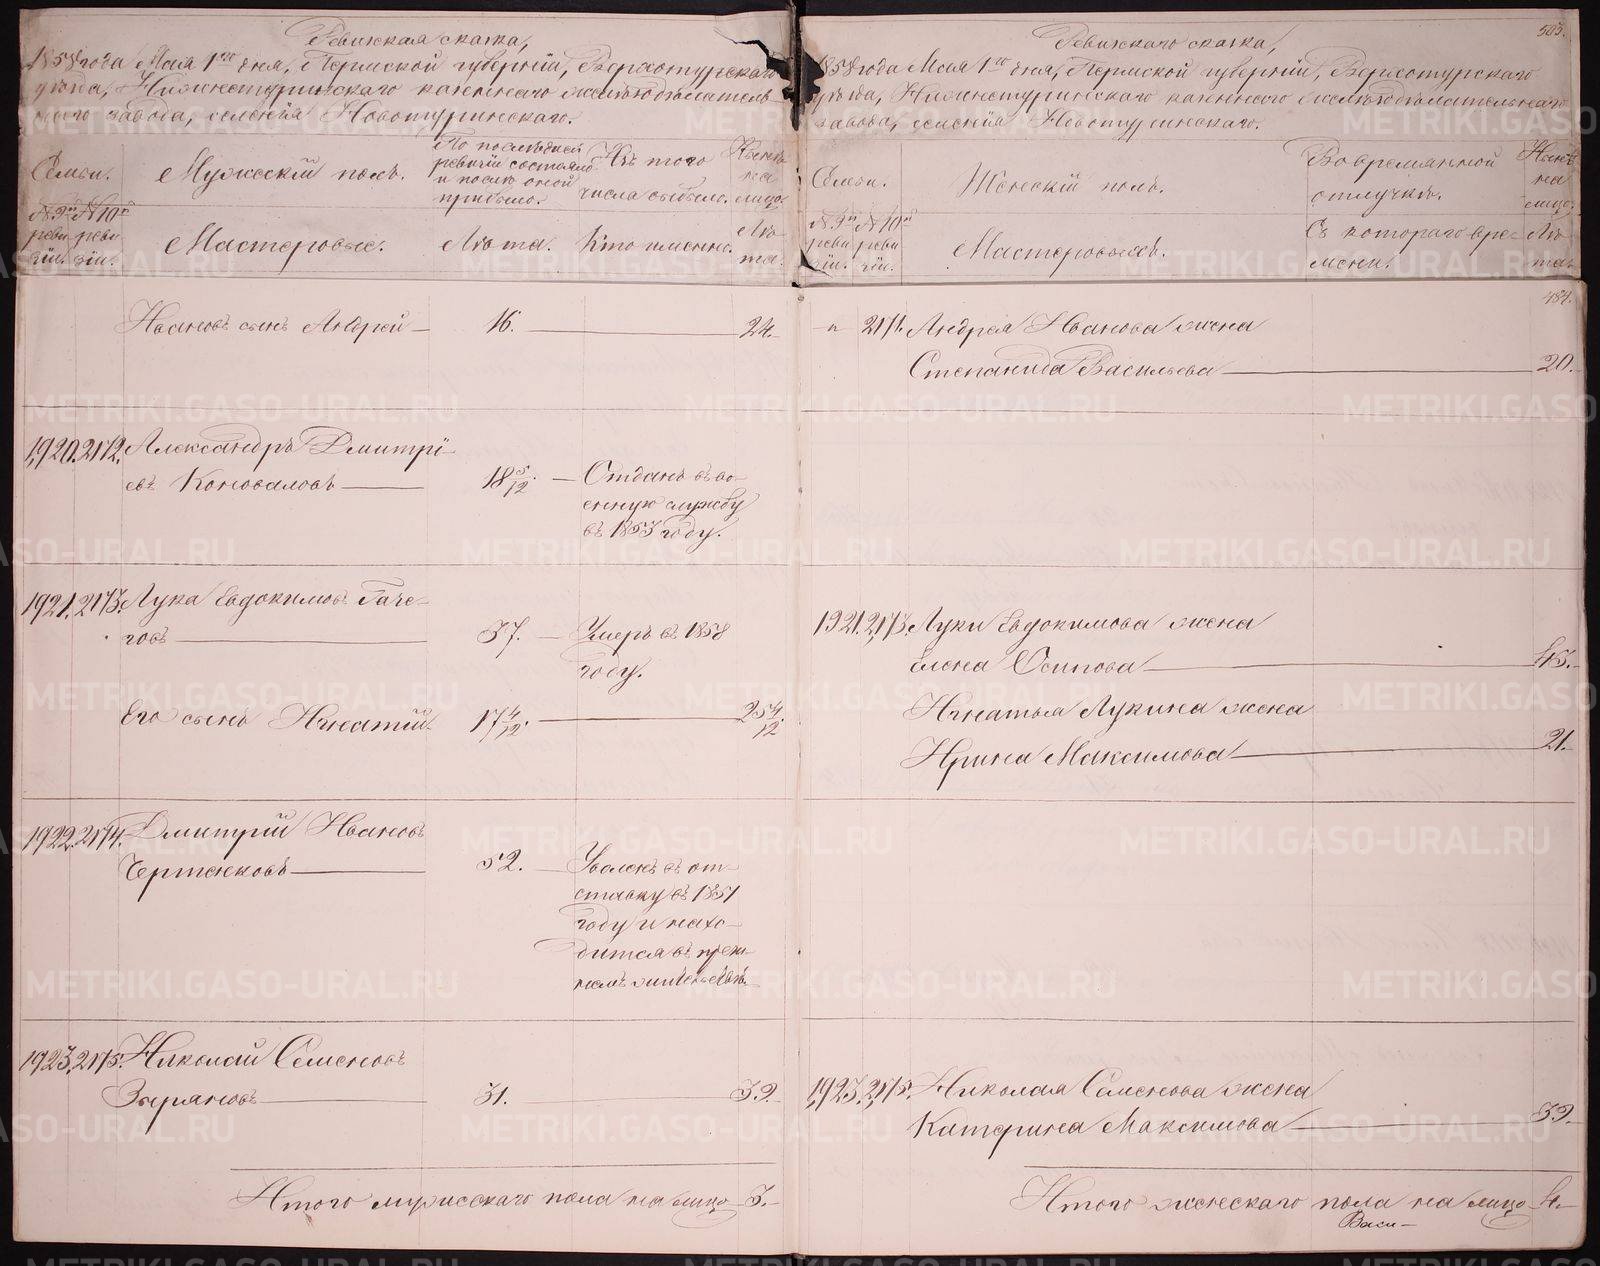 Ревижская сказка,
1858 года Мая 1го дня, Пермской губернiи, Верхотурскаго
уѣзда, Нижнетуринскаго казеннаго желѣзодѣлатель-
наго завода, селенiя Новотуринскаго.
Семьи.
Мужескiй полъ.
По послѣдней
ревизiи состояло
и послѣ оной
прибыло.
Изъ того
числа выбыло.
Нынѣ
на
лицо.
№ 9й № 10й
реви реви
зiи. зiи.
Мастеровые.
Лѣта.
Кто именно.
Лѣ
та.
Ивановъ сынъ Андрей — 16. — 24.
1920. 2172. Александръ Дмитрi-
евъ Коновалов — 18 5/12. — Отданъ въ во-
енную службу
въ 1853 году.
1921. 2173. Лука Евдокимовъ Гаче-
говъ — 37. — Умеръ въ 1858
году.
Его сынъ Игнатiй — 17 4/12. — 25 4/12.
1922. 2174. Дмитрiй Ивановъ
Чертенковъ — 52. — Уволенъ въ от-
ставку въ 1851
году и нахо-
дится въ преж-
немъ жительствѣ.
1923. 2175. Николай Семеновъ
Зыряновъ — 31. — 39.
Итого мужескаго пола на лицо 3.
503.
Ревижскаго сказка,
1858 года Мая 1го дня, Пермской губернiи, Верхотурскаго
уѣзда, Нижнетуринскаго казеннаго желѣзодѣлательнаго
завода, селенiя Новотуринскаго.
Семьи.
Женскiй полъ.
Во временной
отлучкѣ.
Нынѣ
на
лицо.
№ 9й № 10й
реви реви
зiи. зiи.
Мастеровыхъ.
Съ котораго вре-
мени.
Лѣ
та.
484.
" 2171. Андрея Иванова жена
Степанида Васильева — 20.
1921. 2173. Луки Евдокимова жена
Елена Осипова — 43.
Игнатья Лукина жена
Ирина Максимова — 21.
1923. 2175. Николая Семенова жена
Катерина Максимова — 39.
Итого женскаго пола на лицо 4.
Васи-
METRIKI.GASO-URAL.RU